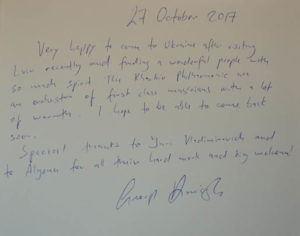 27 October 2017
Very happy to come to Ukraine after visiting
Lviv recently and finding a wonderful people with
so much spirit. The Kharkiv Philharmonic was
an orchestra of first class musicians with a lot
of warmth. I hope to be able to come back
soon.
Special thanks to Yuri Vladimirovich and
to for all their hard work and big welcome!